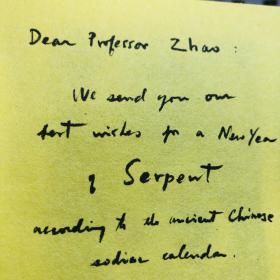 Dear Professor Zhao:
We send you our
best wishes for a New Year
of Serpent
according to the ancient Chinese
zodiac calendar.